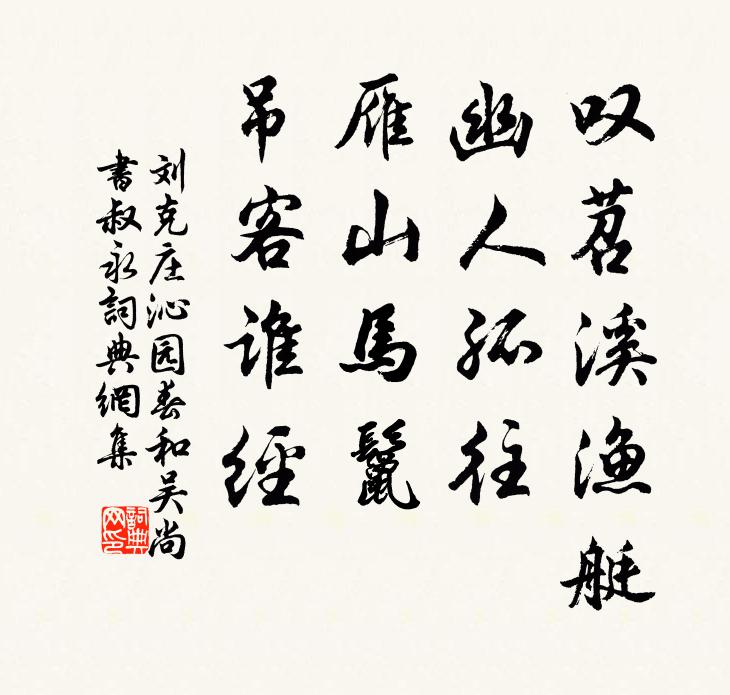 叹苕溪渔艇
幽人孤往
雁山馬鬣
吊客谁經
刘克庄沁园春和吴尚
書叔永詞典網集
詞典网印